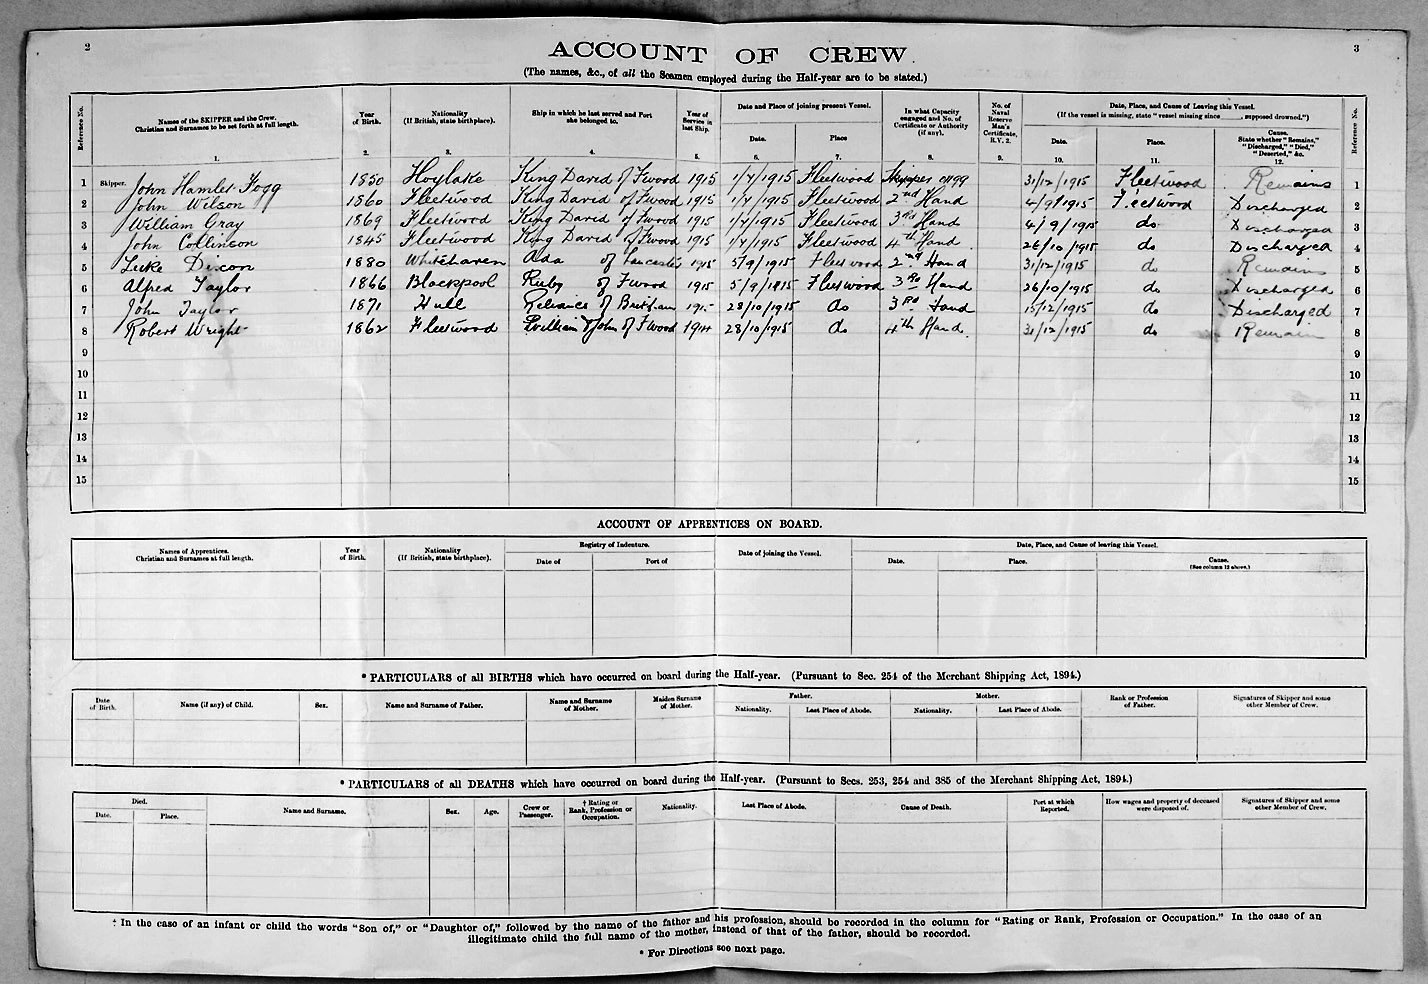 2
3
ACCOUNT OF CREW.
(The names, &c., of all the Seamen employed during the Half-year are to be stated.)
Reference No. | Names of the SKIPPER and the Crew. Christian and Surnames to be set forth at full length. 1. | Year of Birth. 2. | Nationality (If British, state birthplace). 3. | Ship in which he last served and Port she belonged to. 4. | Year of Service in last Ship. 5. | Date and Place of joining present Vessel. Date. 6. | Place 7. | In what Capacity engaged and No. of Certificate or Authority (if any). 8. | No. of Naval Reserve Man's Certificate, R.V. 2. 9. | Date, Place, and Cause of Leaving this Vessel. (If the vessel is missing, state "vessel missing since ____, supposed drowned.") Date. 10. | Place. 11. | Cause. State whether "Remains," "Discharged," "Died," "Deserted," &c. 12. | Reference No.
1 Skipper. John Hamlet Fogg 1850 Hoylake King David of Fwood 1915 1/7/1915 Fleetwood Skipper 31/12/1915 Fleetwood Remains 1
2 John Wilson 1860 Fleetwood King David of Fwood 1915 1/7/1915 Fleetwood 2nd Hand 4/9/1915 Fleetwood Discharged 2
3 William Gray 1869 Fleetwood King David of Fwood 1915 1/7/1915 Fleetwood 3rd Hand 4/9/1915 do Discharged 3
4 John Collinson 1845 Fleetwood King David of Fwood 1915 1/7/1915 Fleetwood 4th Hand 26/10/1915 do Discharged 4
5 Luke Dixon 1880 Whitehaven Ada of Lancaster 1915 5/9/1915 Fleetwood 2nd Hand 31/12/1915 do Remains 5
6 Alfred Taylor 1866 Blackpool Ruby of Fwood 1915 5/9/1915 Fleetwood 3rd Hand 26/10/1915 do Discharged 6
7 John Taylor 1871 Hull Reliance of Brixham 191- 28/10/1915 do 3rd Hand 15/12/1915 do Discharged 7
8 Robert Wright 1862 Fleetwood William & John of Fwood 1914 28/10/1915 do 4th Hand. 31/12/1915 do Remain 8
9 9
10 10
11 11
12 12
13 13
14 14
15 15
ACCOUNT OF APPRENTICES ON BOARD.
Names of Apprentices. Christian and Surnames at full length. | Year of Birth. | Nationality (If British, state birthplace). | Registry of Indenture. Date of | Port of | Date of joining the Vessel. | Date, Place, and Cause of leaving this Vessel. Date. | Place. | Cause. (See column 12 above.)
* PARTICULARS of all BIRTHS which have occurred on board during the Half-year. (Pursuant to Sec. 254 of the Merchant Shipping Act, 1894.)
Date of Birth. | Name (if any) of Child. | Sex. | Name and Surname of Father. | Name and Surname of Mother. | Maiden Surname of Mother. | Father. Nationality. | Last Place of Abode. | Mother. Nationality. | Last Place of Abode. | Rank or Profession of Father. | Signatures of Skipper and some other Member of Crew.
* PARTICULARS of all DEATHS which have occurred on board during the Half-year. (Pursuant to Secs. 253, 254 and 385 of the Merchant Shipping Act, 1894.)
Died. Date. | Place. | Name and Surname. | Sex. | Age. | Crew or Passenger. | † Rating or Rank, Profession or Occupation. | Nationality. | Last Place of Abode. | Cause of Death. | Port at which Reported. | How wages and property of deceased were disposed of. | Signatures of Skipper and some other Member of Crew.
† In the case of an infant or child the words "Son of," or "Daughter of," followed by the name of the father and his profession, should be recorded in the column for "Rating or Rank, Profession or Occupation." In the case of an
illegitimate child the full name of the mother, instead of that of the father, should be recorded.
* For Directions see next page.